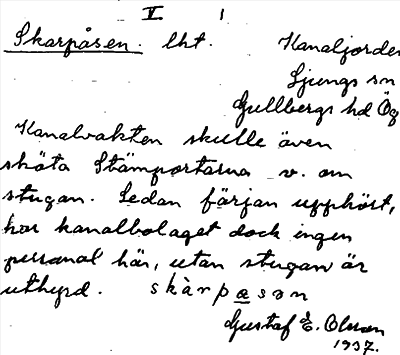 V 1
Skarpåsen. lht. Kanaljorden
Ljungs sn
Gullbergs hd Ög
Kanalvakten skulle även
sköta Stämportarna v. om
stugan. Sedan färjan upphört,
har kanalbolaget dock ingen
personal här, utan stugan är
uthyrd. skàrpåsən
Gustaf E. Olsson
1937.